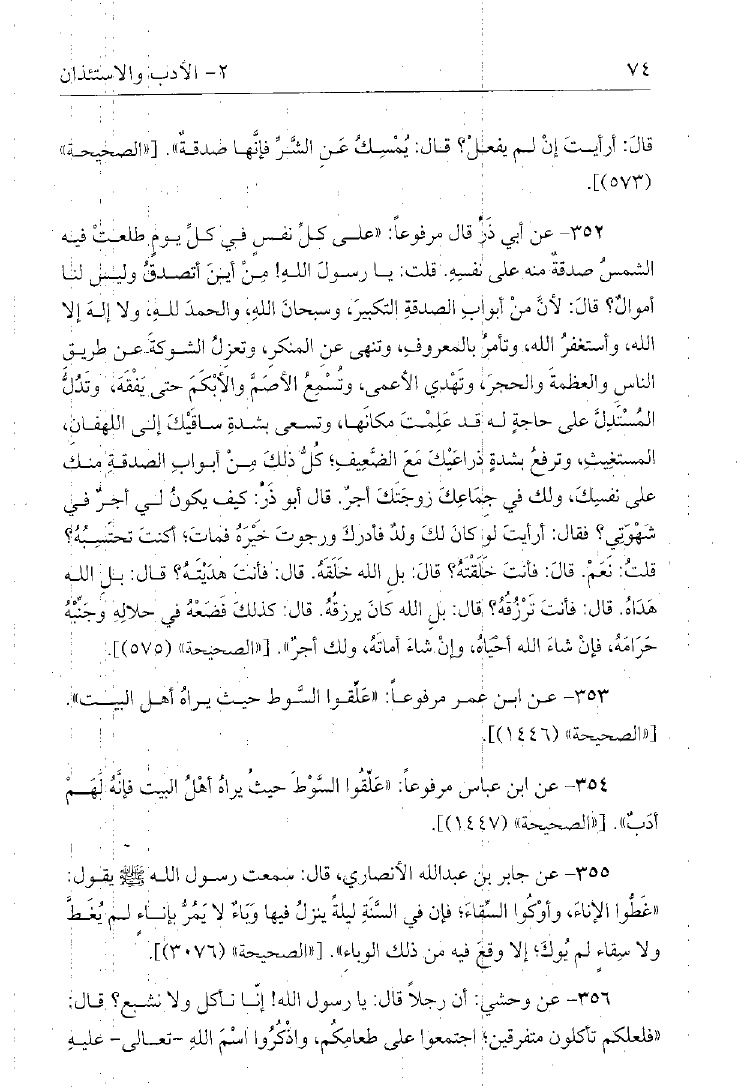 ٧٤
٢- الأدب والاستئذان
قالَ: أرأيتَ إنْ لم يفعلْ؟ قال: يُمْسِكُ عَنِ الشَّرِّ فإنَّها صَدقةٌ». [«الصحيحة»
(٥٧٣)].
٣٥٢- عن أبي ذَرٍّ قال مرفوعاً: «على كلِّ نفسٍ في كلِّ يومٍ طلعتْ فيه
الشمسُ صدقةٌ منه على نفسِهِ. قلت: يا رسولَ اللهِ! مِنْ أينَ أتصدقُ وليس لنا
أموالٌ؟ قالَ: لأنَّ منْ أبوابِ الصدقةِ التكبيرَ، وسبحانَ اللهِ، والحمدَ للهِ، ولا إلهَ إلا
الله، وأستغفرُ الله، وتأمرُ بالمعروفِ، وتنهى عنِ المنكرِ، وتعزلُ الشوكةَ عن طريقِ
الناسِ والعظمةَ والحجرَ، وتَهْدي الأعمى، وتُسْمِعُ الأصَمَّ والأبْكَمَ حتى يَفْقَهَ، وتَدُلُّ
المُسْتَدِلَّ على حاجةٍ له قد عَلِمْتَ مكانَها، وتسعى بشدةِ ساقَيْكَ إلى اللهفانِ،
المستغيثِ، وترفعُ بشدةِ ذراعَيْكَ مَعَ الضَّعيفِ؛ كلُّ ذلكَ مِنْ أبوابِ الصدقةِ منك
على نفسِكَ، ولك في جِمَاعِكَ زوجتَكَ أجرٌ. قال أبو ذَرٍّ: كيف يكونُ لي أجرٌ في
شَهْوَتِي؟ فقال: أرأيتَ لو كانَ لكَ ولدٌ فأدركَ ورجوتَ خَيْرَهُ فماتَ؛ أكنتَ تحتَسِبُهُ؟
قلتُ: نَعَمْ. قالَ: فأنتَ خلَقْتَهُ؟ قالَ: بلِ الله خلَقَهُ. قال: فأنتَ هدَيْتَهُ؟ قال: بلِ الله
هَدَاهُ. قال: فأنتَ تَرْزُقُهُ؟ قال: بلِ الله كانَ يرزقُهُ. قال: كذلكَ فَضَعْهُ في حلالِهِ وجَنِّبْهُ
حَرَامَهُ، فإنْ شاءَ الله أحْيَاهُ، وإنْ شاءَ أماتَهُ، ولك أجرٌ». [«الصحيحة» (٥٧٥)].
٣٥٣- عن ابن عمر مرفوعاً: «عَلِّقوا السَّوط حيث يراهُ أهل البيت».
[«الصحيحة» (١٤٤٦)].
٣٥٤- عن ابن عباس مرفوعاً: «عَلِّقُوا السَّوْطَ حيثُ يراهُ أهْلُ البيت فإنَّهُ لَهُمْ
أدَبٌ». [«الصحيحة» (١٤٤٧)].
٣٥٥- عن جابر بن عبدالله الأنصاري، قال: سمعت رسول الله ﷺ يقول:
«غَطُّوا الإناءَ، وأوْكُوا السِّقاءَ؛ فإن في السَّنَةِ ليلةً ينزلُ فيها وَبَاءٌ لا يَمُرُّ بإناءٍ لم يُغَطَّ
ولا سِقاءٍ لم يُوكَ؛ إلا وقعَ فيه من ذلك الوباء». [«الصحيحة» (٣٠٧٦)].
٣٥٦- عن وحشي: أن رجلاً قال: يا رسول الله! إنّا نأكل ولا نشبع؟ قال:
«فلعلكم تأكلون متفرقين؛ اجتمعوا على طعامِكُم، واذْكُرُوا اسْمَ اللهِ -تعالى- عليهِ